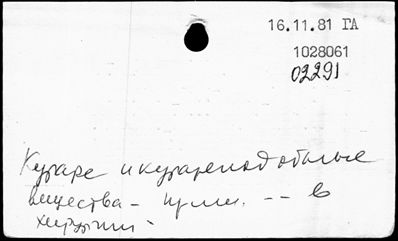 16.11.81 ГА
1028061
02291
Кураре и курареподобные
вещества – прим. -- в
хирургии.